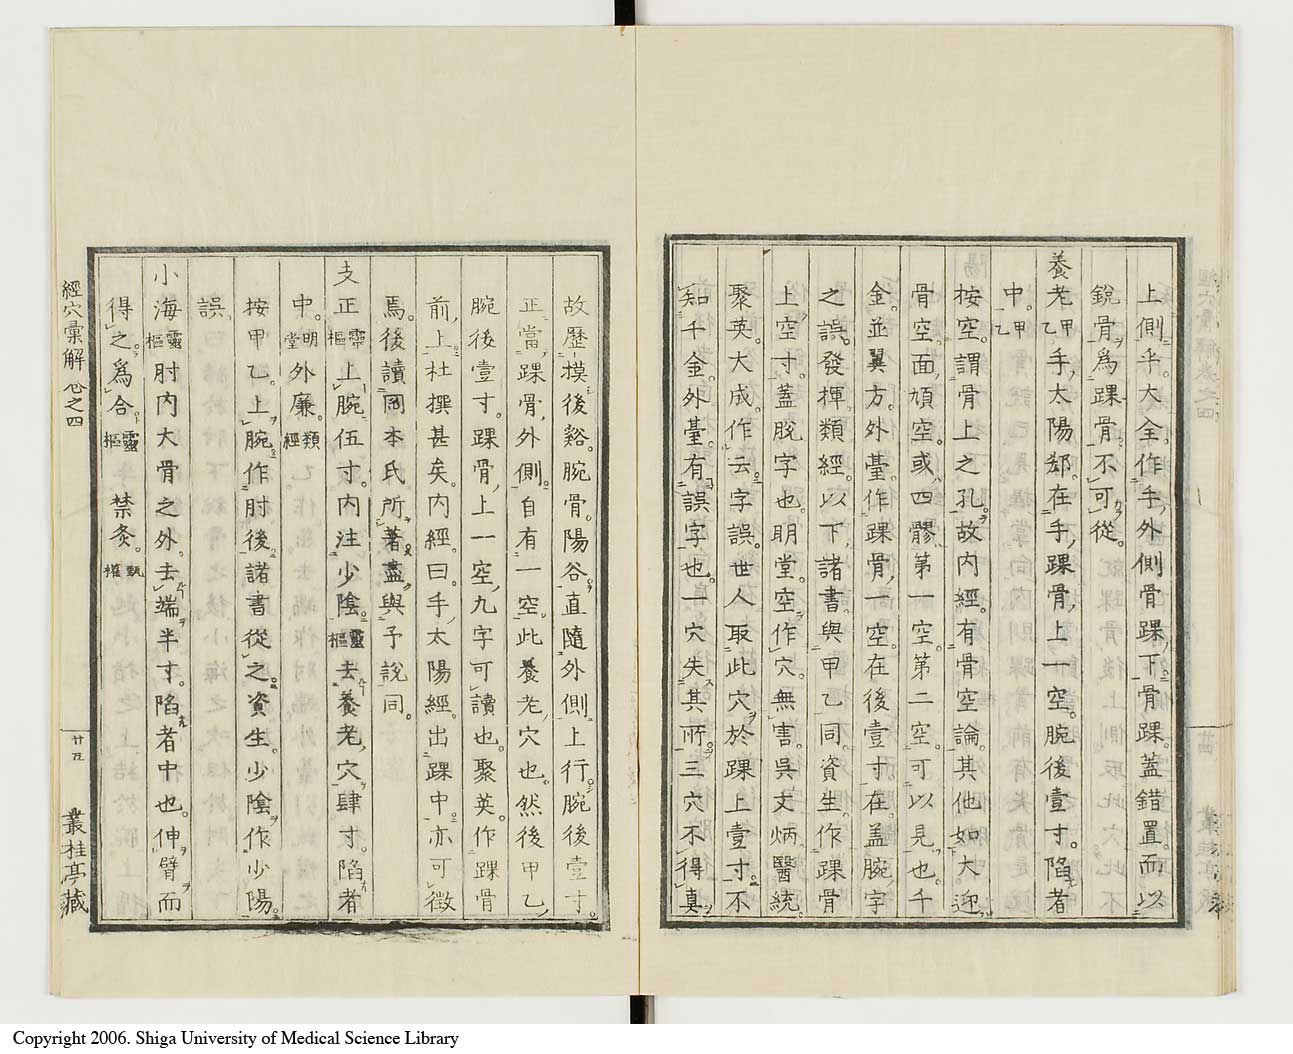 上側乎大全作手外側骨踝下骨踝蓋錯置而以
銳骨爲踝骨不可從
養老甲乙手太陽郄在手踝骨上一空腕後壹寸陷者
中甲乙
按空謂骨上之孔故內經有骨空論其他如大迎
骨空面頄空或四髎第一空第二空可以見也千
金並翼方外臺作踝骨一空在後壹寸在蓋腕字
之誤發揮類經以下諸書與甲乙同資生作踝骨
上空寸蓋脫字也明堂空作穴無害吳文炳醫統
聚英大成作云字誤世人取此穴於踝上壹寸不
知千金外臺有誤字也一穴失其所三穴不得真
故歷摸後谿腕骨陽谷直隨外側上行腕後壹寸
正當踝骨外側自有一空此養老穴也然後甲乙
腕後壹寸踝骨上一空九字可讀也聚英作踝骨
前上杜撰甚矣內經曰手太陽經出踝中亦可徵
焉後讀岡本氏所著盡與予說同
支正靈樞上腕伍寸內注少陰靈樞去養老穴肆寸陷者
中明堂外廉類經
按甲乙上腕作肘後諸書從之資生少陰作少陽
誤
小海靈樞肘內大骨之外去端半寸陷者中也伸臂而
得之爲合靈樞禁灸甄權
經穴彙解卷之四
廿五
叢桂亭藏
Copyright 2006. Shiga University of Medical Science Library